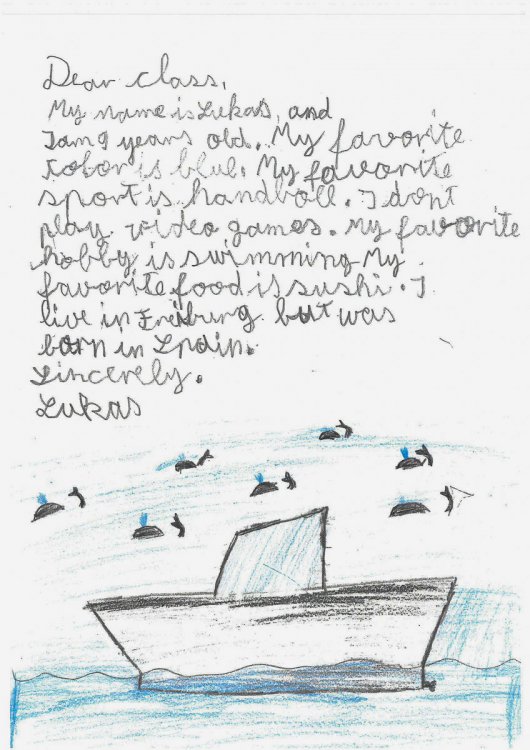 Dear class,
My name is Lukas, and
I am 9 years old. My favorite
color is blue. My favorite
sport is handball. I dont
play video games. My favorite
hobby is swimming My
favorite food is sushi. I
live in Freiburg. but was
born in Spain.
Sincerely.
Lukas